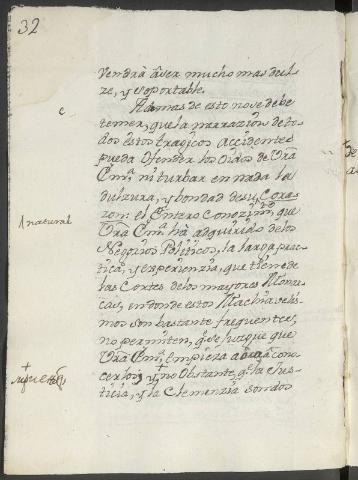 32
vendrà àser mucho mas dul-
ze, y soportable.
Ademas de esto nose debe
temer, que la narrazion de to-
dos estos tragicos accidentes
pueda ofender los Oidos de Vrã
Em.ª ni turbar en nada la
dulzura, y bondad de su Cora-
zon: el entero conozim.to que
Vrã Em.ª hà adquirido delos
Negozios Politicos, la larga prac-
tica, y experienzia, que tiene de
las Cortes delos mayores Monar-
cas, en donde estos Machiavelis-
mos son bastante frequentes,
no permiten, q.e se juzgue que
Vrã Em.ª empieza aora à cono-
cerlos; y no obstante, q.e la Jus-
ticia, y la Clemenzia son dos
c
natural